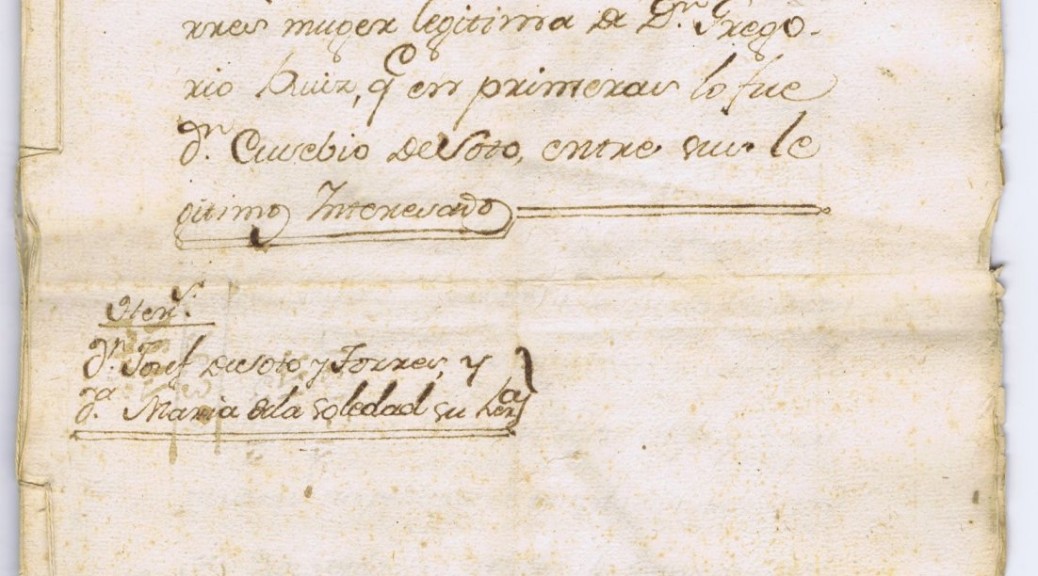 rres muger legitima de Dn. Grego-
rio Ruiz, q en primeras lo fue
dn. Eusebio de Soto, entre sus le
gitimos Interesados
Hers.
dn. Josef de Soto y Torres, y
da. Maria de la Soledad su herna